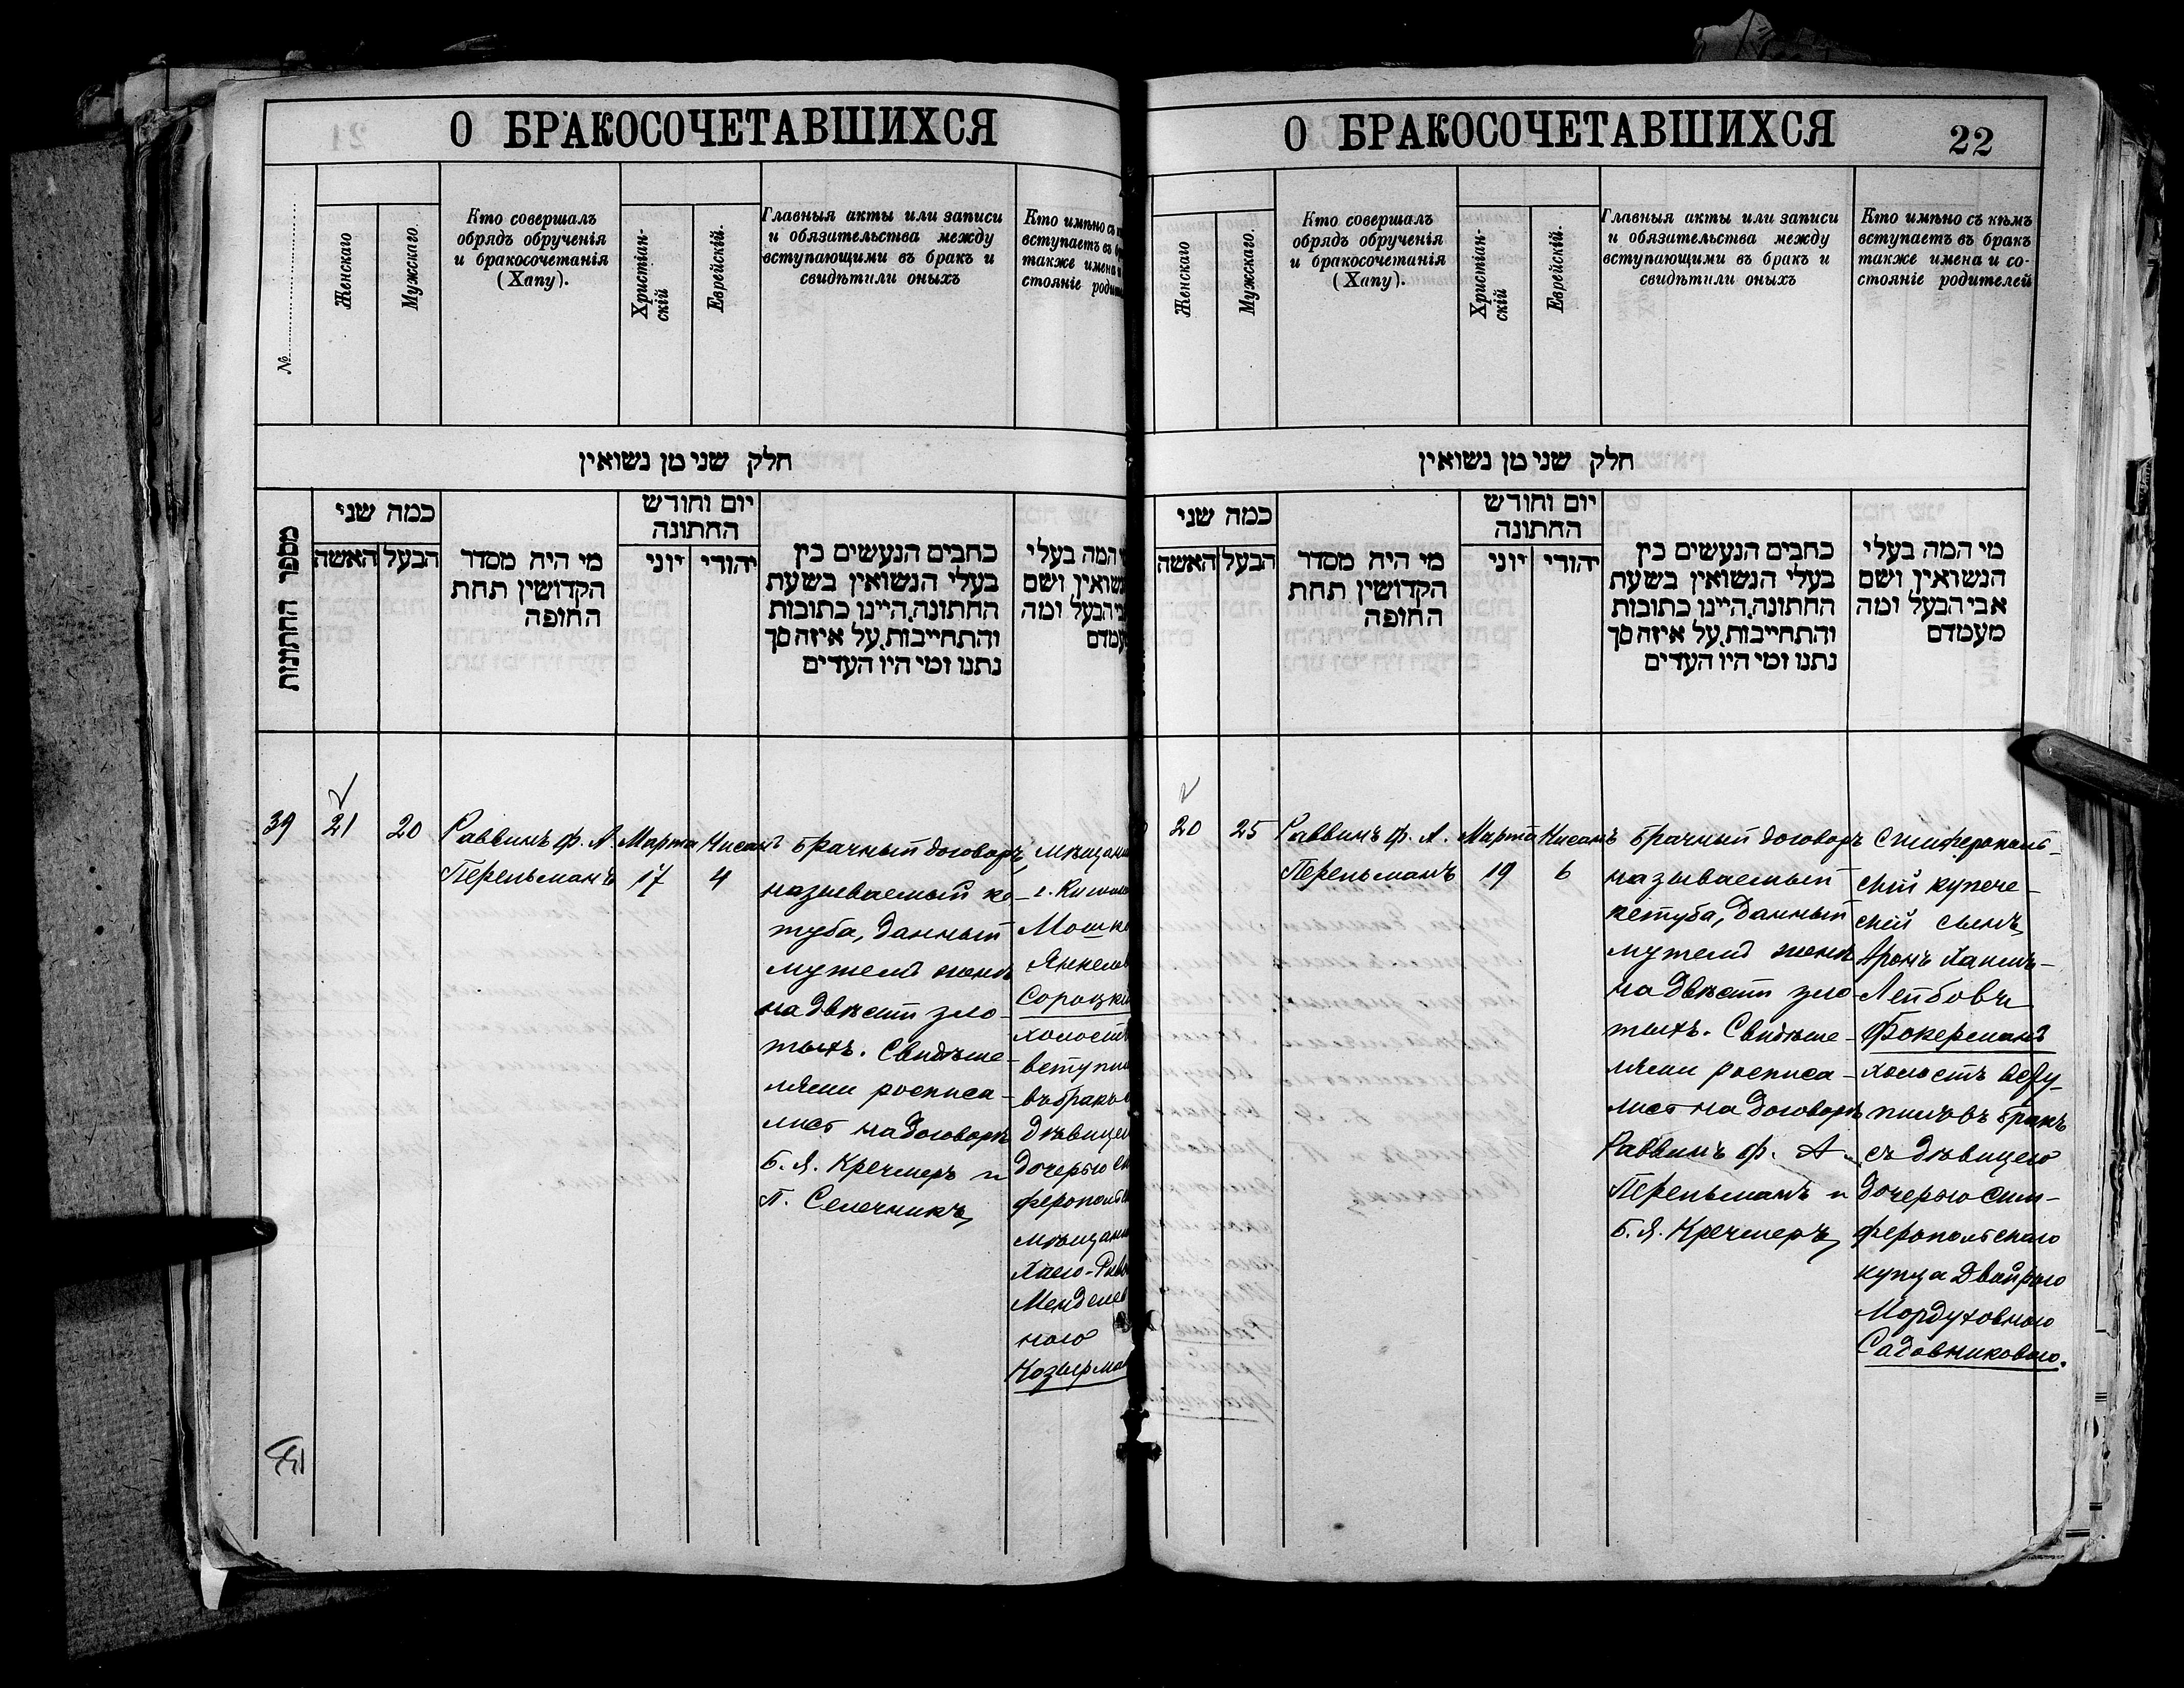 О БРАКОСОЧЕТАВШИХСЯ
№
Женскаго
Мужскаго.
Кто совершалъ
обрядъ обрученія
и бракосочетанія
(Хапу).
Христіан-
скій
Еврейскій.
Главныя акты или записи
и обязательства между
вступающими въ бракъ и
свидѣтили оныхъ
Кто имѣно съ
вступаетъ въ
также имена
стояніе
חלק שני מן נשואין
מספר החתונות
כמה שני
האשה
הבעל
מי היה מסדר
הקדושין תחת
החופה
יום וחודש
החתונה
יוני
יהודי
כתבים הנעשים בין
בעלי הנשואין בשעת
החתונה, היינו כתובות
והתחייבות, על איזה סך
נתנו ומי היו העדים
המה בעלי
ושם
הבעל ומה
39
21
20
Раввинъ Ф. А.
Перельманъ
Марта
17
Нисанъ
4
Брачный договоръ,
называемый ке-
туба, данный
мужемъ женѣ
на двѣсти зло-
тыхъ. Свидѣте-
лями росписа-
лись на договорѣ
Б. Я. Кречмеръ и
П. Селечникъ
г.
Козырма
О БРАКОСОЧЕТАВШИХСЯ
22
Женскаго
Мужскаго.
Кто совершалъ
обрядъ обрученія
и бракосочетанія
(Хапу).
Христіан-
скій
Еврейскій.
Главныя акты или записи
и обязательства между
вступающими въ бракъ и
свидѣтили оныхъ
Кто имѣно съ кѣмъ
вступаетъ въ бракъ
также имена и со-
стояніе родителей
חלק שני מן נשואין
כמה שני
האשה
הבעל
מי היה מסדר
הקדושין תחת
החופה
יום וחודש
החתונה
יוני
יהודי
כתבים הנעשים בין
בעלי הנשואין בשעת
החתונה, היינו כתובות
והתחייבות, על איזה סך
נתנו ומי היו העדים
מי המה בעלי
הנשואין ושם
אבי הבעל ומה
מעמדם
20
25
Раввинъ Ф. А.
Перельманъ
Марта
19
Нисанъ
6
Брачный договоръ
называемый
кетуба, данный
мужемъ женѣ
на двѣсти зло-
тыхъ. Свидѣте-
лями росписа-
лись на договорѣ
Раввинъ Ф. А.
Перельманъ и
Б. Я. Кречмеръ
Симферополь-
скій купече-
скій сынъ
Аронъ Хаимъ-
Лейбовъ
Фокерманъ
холостъ всту-
пилъ въ бракъ
съ дѣвицею
дочерью Сим-
феропольскаго
купца Двойрою
Мордуховною
Садовниковою.